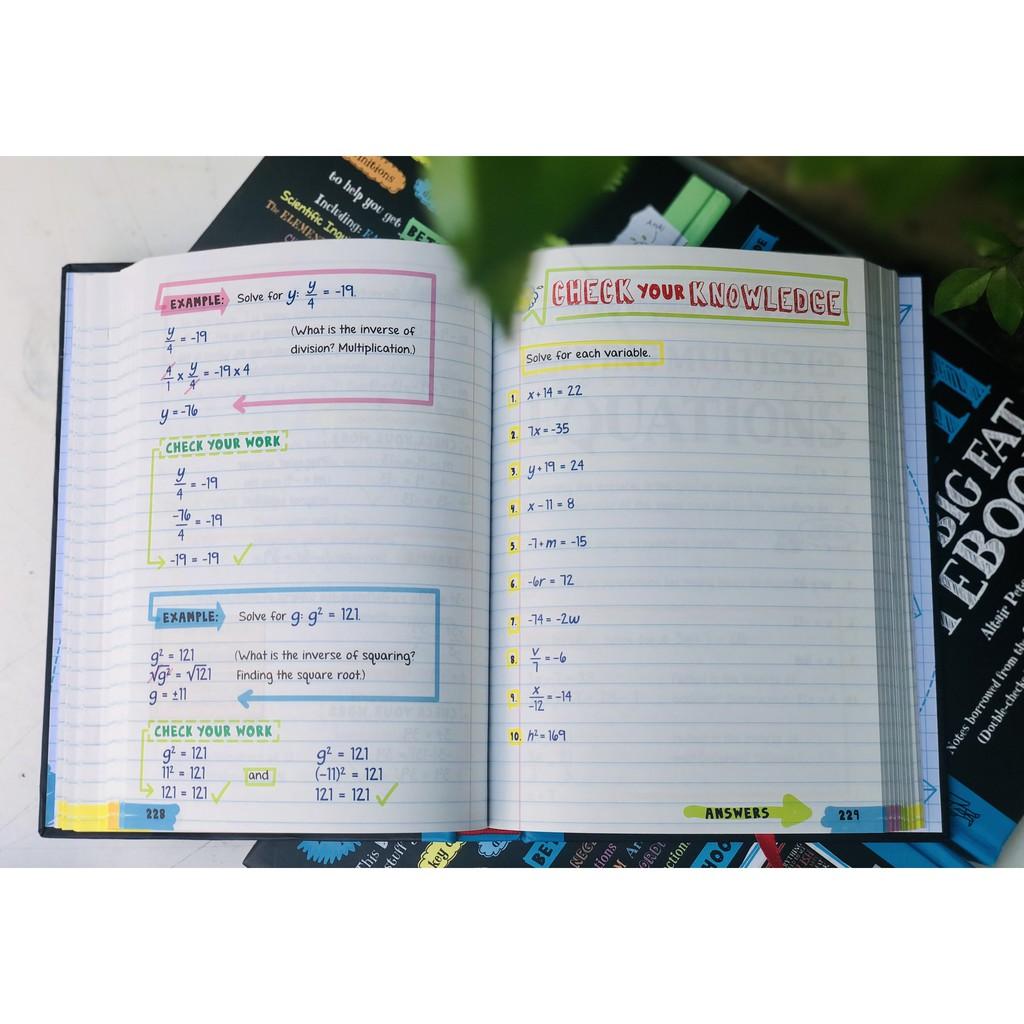 to help you get
Including:
Scientific
The
EXAMPLE: Solve for y: y/4 = -19.
y/4 = -19
(What is the inverse of
division? Multiplication.)
4/1 x y/4 = -19 x 4
y = -76
CHECK YOUR WORK
y/4 = -19
-76/4 = -19
-19 = -19 ✓
EXAMPLE: Solve for g: g² = 121.
g² = 121
(What is the inverse of squaring?
√g² = √121
Finding the square root.)
g = ±11
CHECK YOUR WORK
g² = 121
11² = 121
121 = 121 ✓
and
g² = 121
(-11)² = 121
121 = 121 ✓
228
CHECK YOUR KNOWLEDGE
Solve for each variable.
1. x + 14 = 22
2. 7x = -35
3. y + 19 = 24
4. x - 11 = 8
5. -7 + m = -15
6. -6r = 72
7. -74 = -2w
8. v/7 = -6
9. x/-12 = -14
10. h² = 169
ANSWERS
229
BIG FAT
Altair
Notes borrowed from the
key